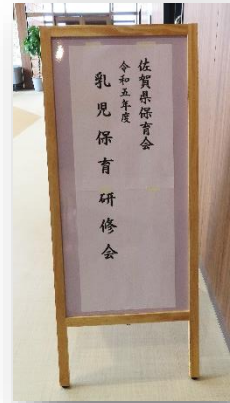 佐賀県保育会
令和五年度
乳児保育研修会